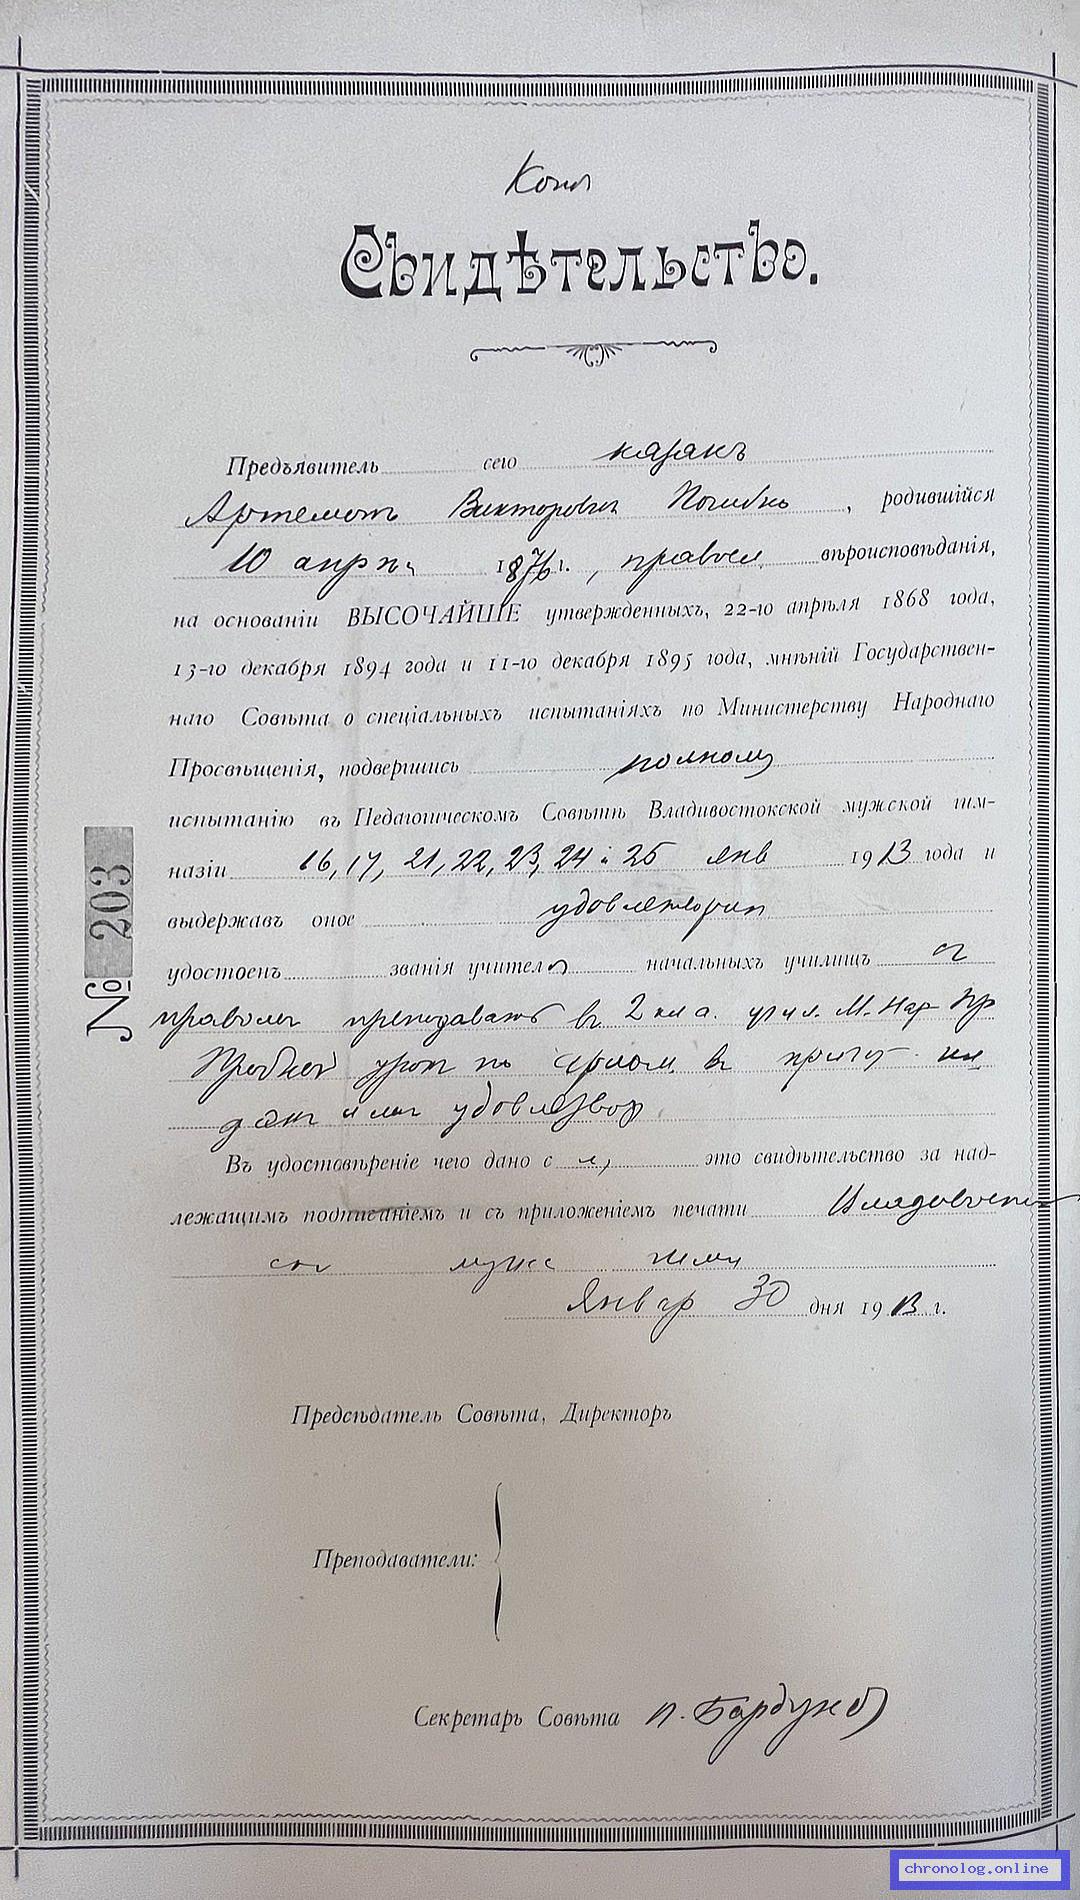 Копія
Свидѣтельство.
Предъявитель сего казакъ
Викторович , родившійся
10 апрѣ 1876 г., правосл. вѣроисповѣданія,
на основаніи ВЫСОЧАЙШЕ утвержденныхъ, 22-го апрѣля 1868 года,
13-го декабря 1894 года и 11-го декабря 1895 года, мнѣній Государствен-
наго Совѣта о спеціальныхъ испытаніяхъ по Министерству Народнаго
Просвѣщенія, подвергшись полному
испытанію въ Педагогическомъ Совѣтѣ Владивостокской мужской гим-
назіи 16, 17, 21, 22, 23, 24 и 25 янв 1913 года и
выдержавъ оное
удостоенъ званія учителя начальныхъ училищъ с
правомъ преподавать въ 2 кла. учил. М. Нар. Пр
Пробный урок по в
дан им удовлетвор.
Въ удостовѣреніе чего дано с это свидѣтельство за над-
лежащимъ подписаніемъ и съ приложеніемъ печати Владивосток
ской мужс гимн
Январ 30 дня 1913 г.
№ 203
Предсѣдатель Совѣта, Директоръ
Преподаватели:
Секретарь Совѣта
chronolog.online